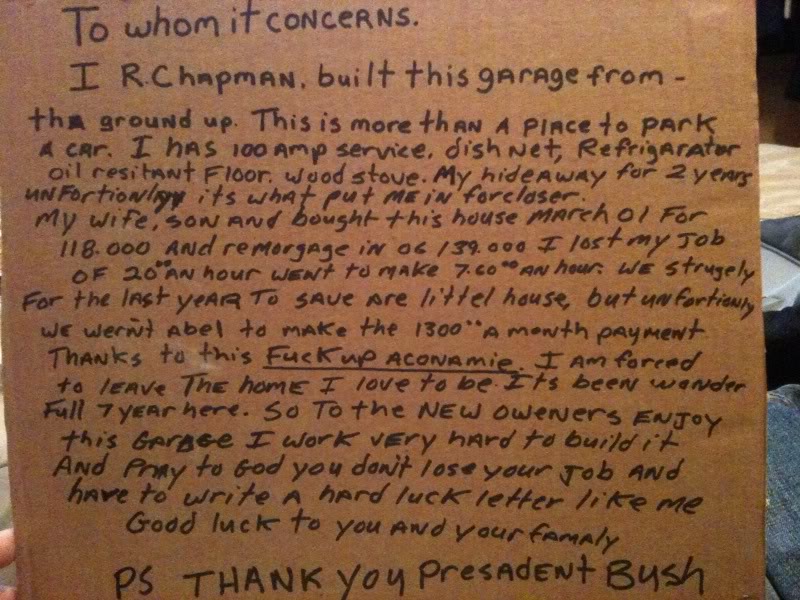 To whom it CONCERNS.
I R.CHAPMAN, built this garage from -
tha ground up. This is more than A place to park
A car. I has 100 Amp service, dish Net, Refrigarator
oil resitant Floor. Wood stove. My hideaway for 2 years
unfortionlay its what put me in forcloser.
My wife, son and bought this house March 01 For
118.000 And remorgage in 06 139.000 I lost my Job
OF 20°° AN hour went to make 7.60°° AN hour. We strugely
For the last year To save are littel house, but unfortionly
we wernt Abel to make the 1300°° A month payment.
Thanks to this Fuckup Aconamie. I Am forced
to leave The home I love to be. Its been wonder
Full 7 year here. So To the New oweners Enjoy
this Garage I work very hard to build it
And Pray to God you don't lose your Job And
have to write A hard luck letter like me
Good luck to you And your famaly
PS THANK you Presadent Bush